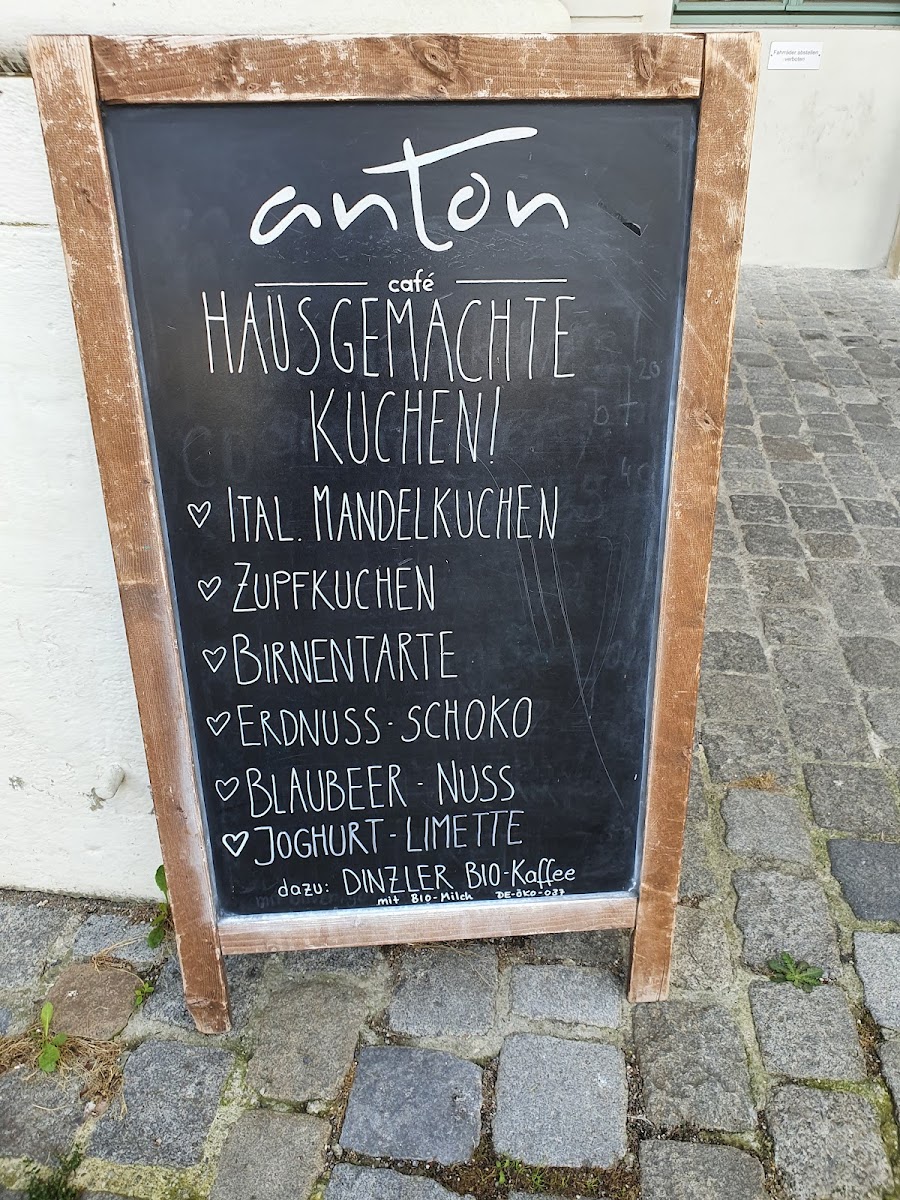 Fahrräder abstellen
verboten
anton
café
HAUSGEMACHTE
KUCHEN!
ITAL. MANDELKUCHEN
ZUPFKUCHEN
BIRNENTARTE
ERDNUSS-SCHOKO
BLAUBEER-NUSS
JOGHURT-LIMETTE
dazu: DINZLER BIO-Kaffee
mit BIO-Milch DE-ÖKO-037